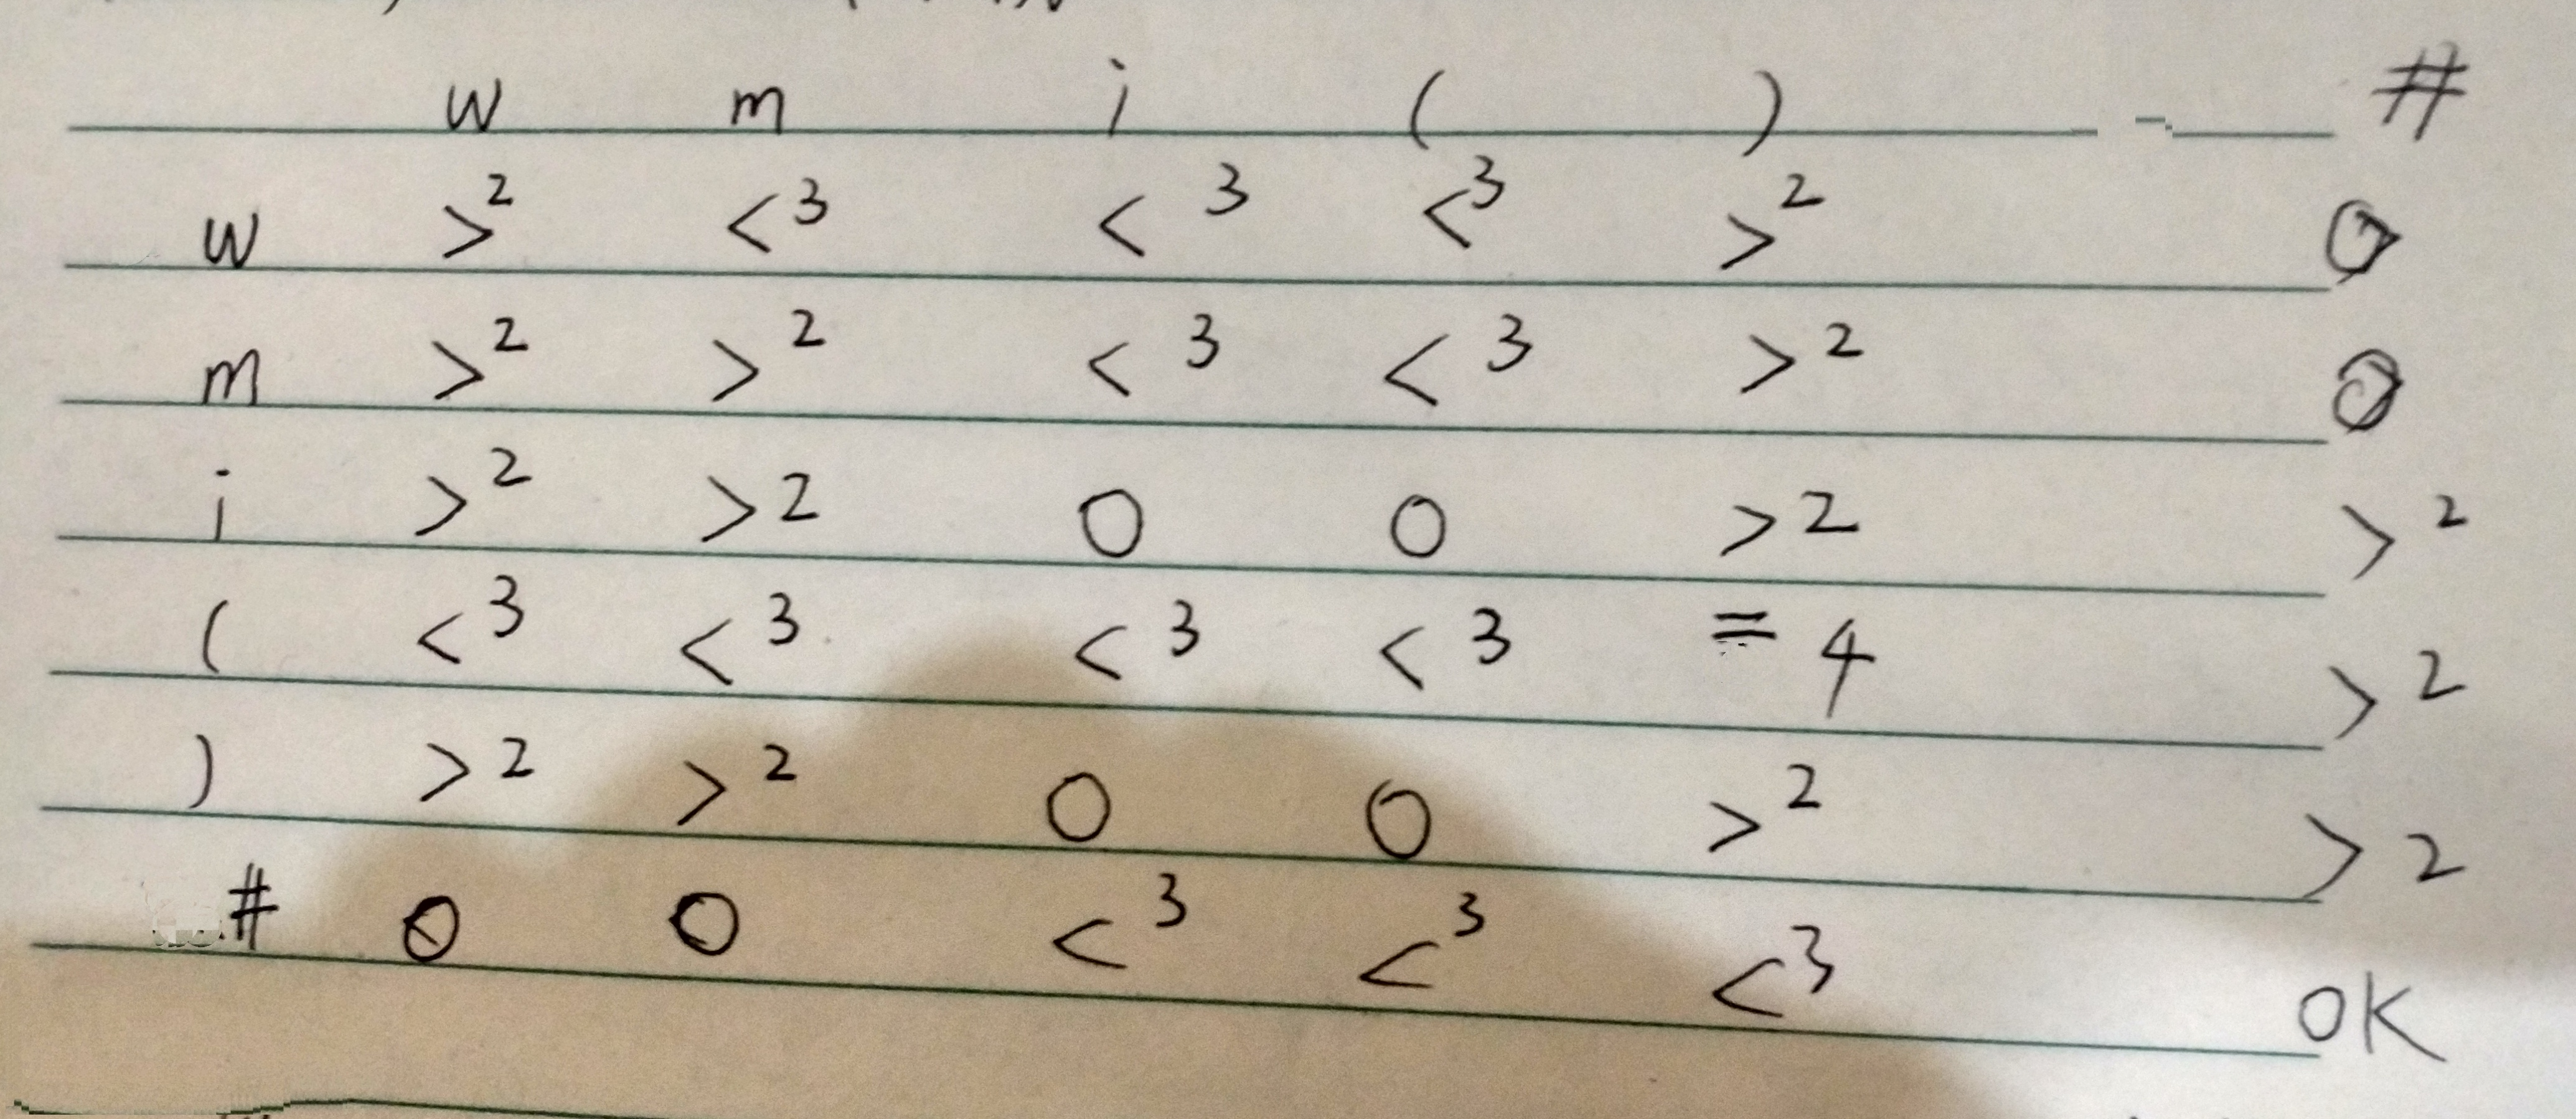 w m i ( ) #
w >2 <3 <3 <3 >2 0
m >2 >2 <3 <3 >2 0
i >2 >2 0 0 >2 >2
( <3 <3 <3 <3 = 4 >2
) >2 >2 0 0 >2 >2
# 0 0 <3 <3 <3 OK